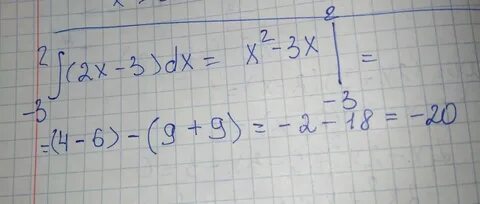 ∫₋₃² (2x-3)dx = x²-3x |₋₃² =
=(4-6)-(9+9)= -2-18 = -20